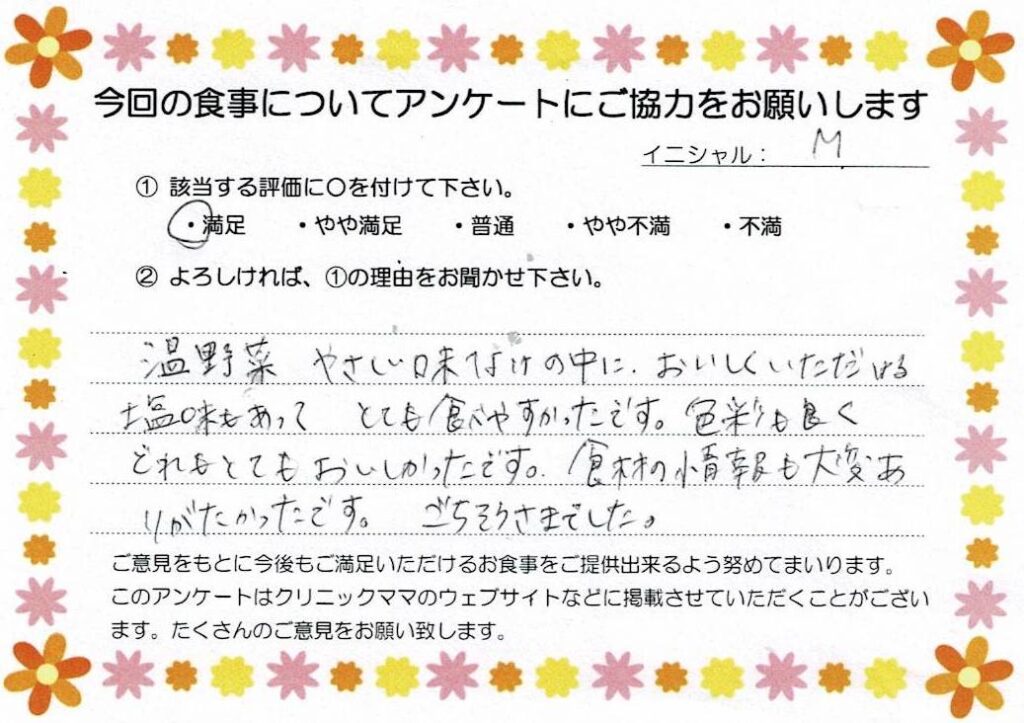 今回の食事についてアンケートにご協力をお願いします
イニシャル： M
① 該当する評価に〇を付けて下さい。
・満足 ・やや満足 ・普通 ・やや不満 ・不満
② よろしければ、①の理由をお聞かせ下さい。
温野菜 やさしい味なけの中に、おいしくいただける
塩味もあって とても食べやすかったです。色彩も良く
どれもとてもおいしかったです。食材の情報も大変あ
りがたかったです。 ごちそうさまでした。
ご意見をもとに今後もご満足いただけるお食事をご提供出来るよう努めてまいります。
このアンケートはクリニックママのウェブサイトなどに掲載させていただくことがござい
ます。たくさんのご意見をお願い致します。